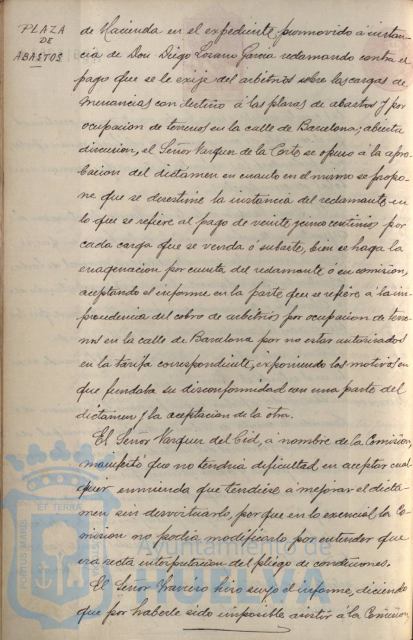 PLAZA
DE
ABASTOS
de Hacienda en el expediente promovido á instan-
cia de Don Diego Lozano Garcia reclamando contra el
pago que se le exije del arbitrio sobre las cargas de
mercancias con destino á las plazas de abastos y por
ocupacion de terrenos en la calle de Barcelona; abierta
discusion, el Señor Vazquez de la Corte se opuso á la apro-
bacion del dictamen en cuanto en el mismo se propo-
ne que se desestime la instancia del reclamante en
lo que se refiere al pago de veinte y cinco centimos por
cada carga que se venda ó subaste, bien se haga la
enagenacion por cuenta del reclamante ó en comision,
aceptando el informe en la parte que se refiere á la im-
procedencia del cobro de arbitrios por ocupacion de terre-
nos en la calle de Barcelona por no estar autorizados
en la tarifa correspondiente, exponiendo los motivos en
que fundaba su disconformidad con una parte del
dictamen y la aceptacion de la otra.
El Señor Vazquez del Cid, á nombre de la Comision,
manifestó que no tendria dificultad en aceptar cual
quier enmienda que tendiese á mejorar el dicta-
men sin desvirtuarlo, por que en lo esencial la Co-
mision no podia modificarlo por entender que
era recta interpretacion del pliego de condiciones.
El Señor Traviero hizo suyo el informe, diciendo
que por haberle sido imposible asistir á la Comision
ET TERRA
PORTUS MARIS
Ayuntamiento de
HUELVA